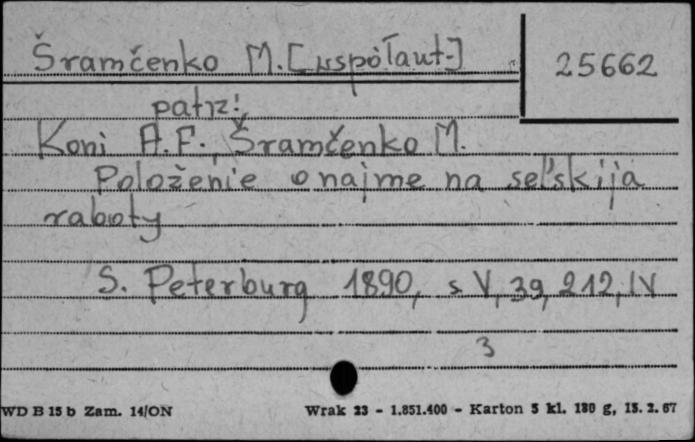 Šramčenko M. [współaut.]
25662
patrz:
Koni A.F., Šramčenko M.
Položenie o najme na sel'skija
raboty
S. Peterburg 1890, s V, 39, 212, IV
3
WD B 15 b Zam. 14/ON Wrak 23 - 1.851.400 - Karton 5 kl. 180 g, 15. 2. 67